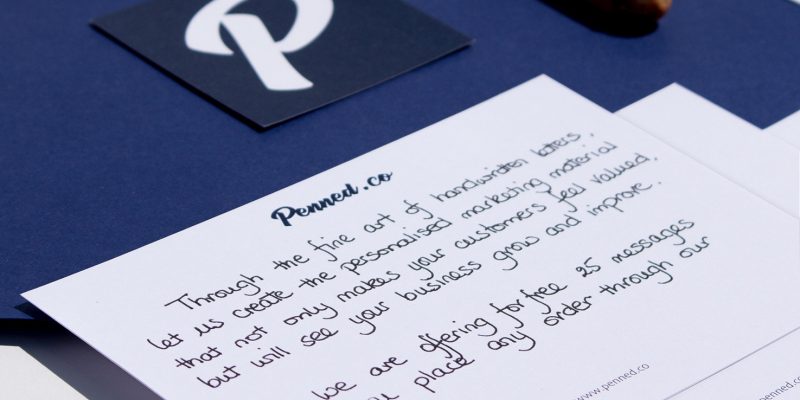 P
Penned.co
Through the fine art of handwritten letters,
let us create the personalised marketing material
that not only makes your customers feel valued,
but will see your business grow and improve.
we are offering for free 25 messages
place any order through our
www.penned.co
www.penned.co